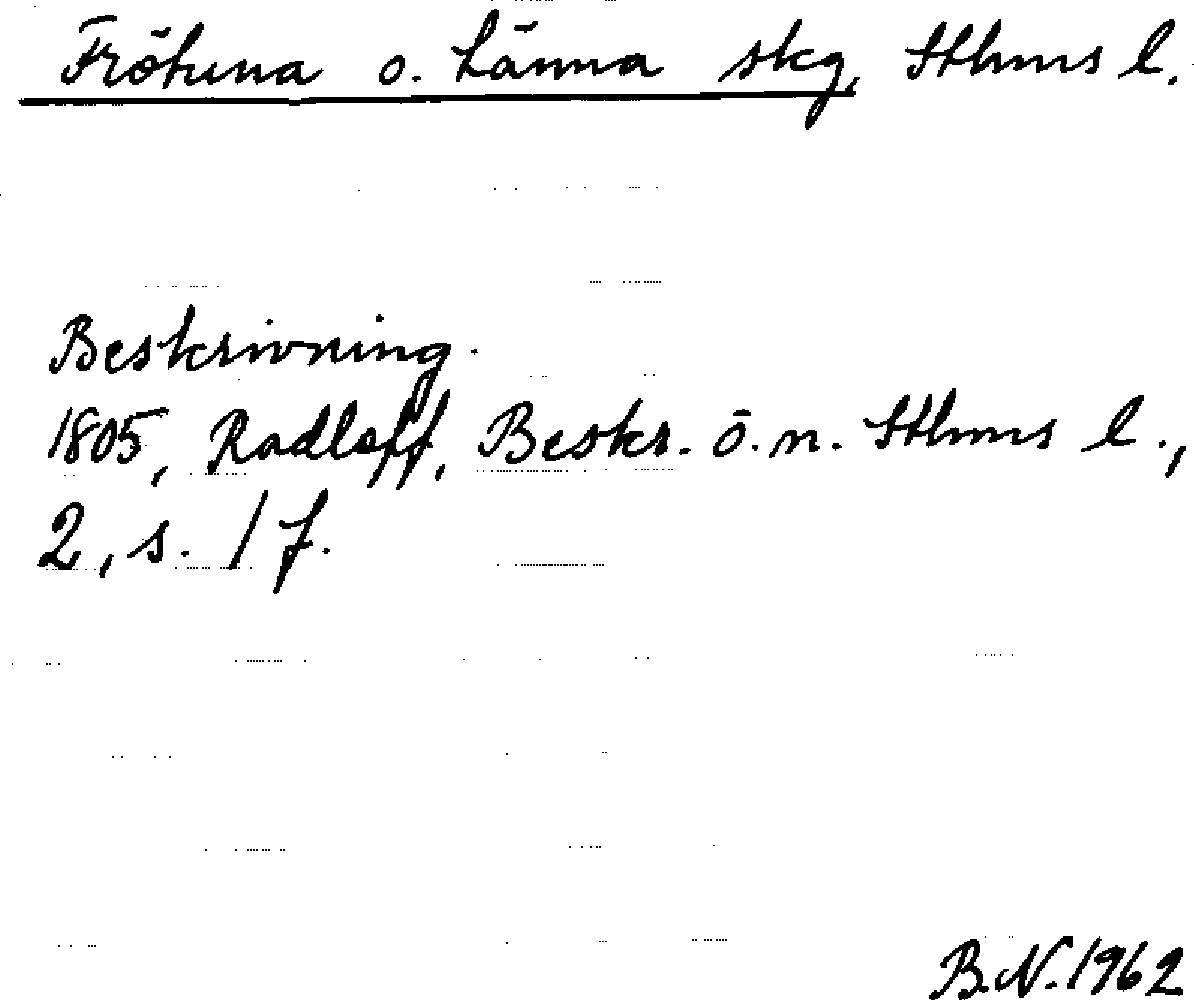 Frötuna o. Länna skg, Sthms l.
Beskrivning.
1805, Radloff, Beskr. ö. n. Sthms l.,
2, s. 1 f.
B.N. 1962